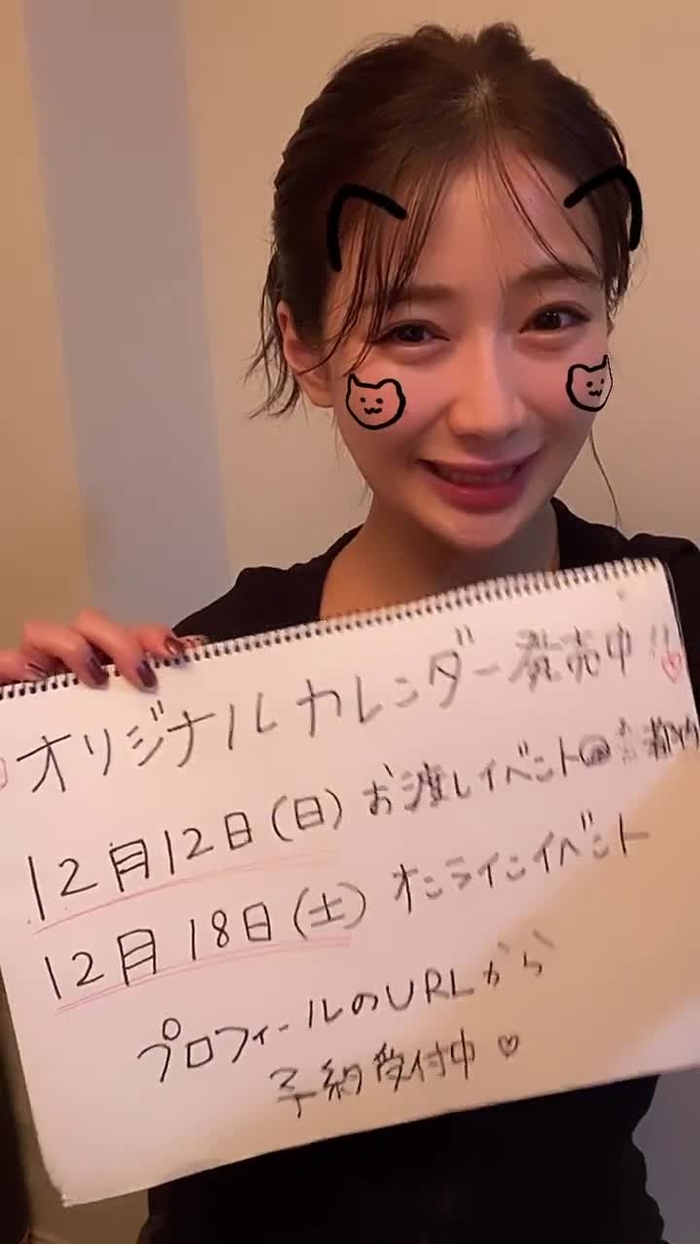 オリジナルカレンダー発売中!!
12月12日(日) お渡しイベント@
12月18日(土) オンラインイベント
プロフィールのURLから
予約受付中♡